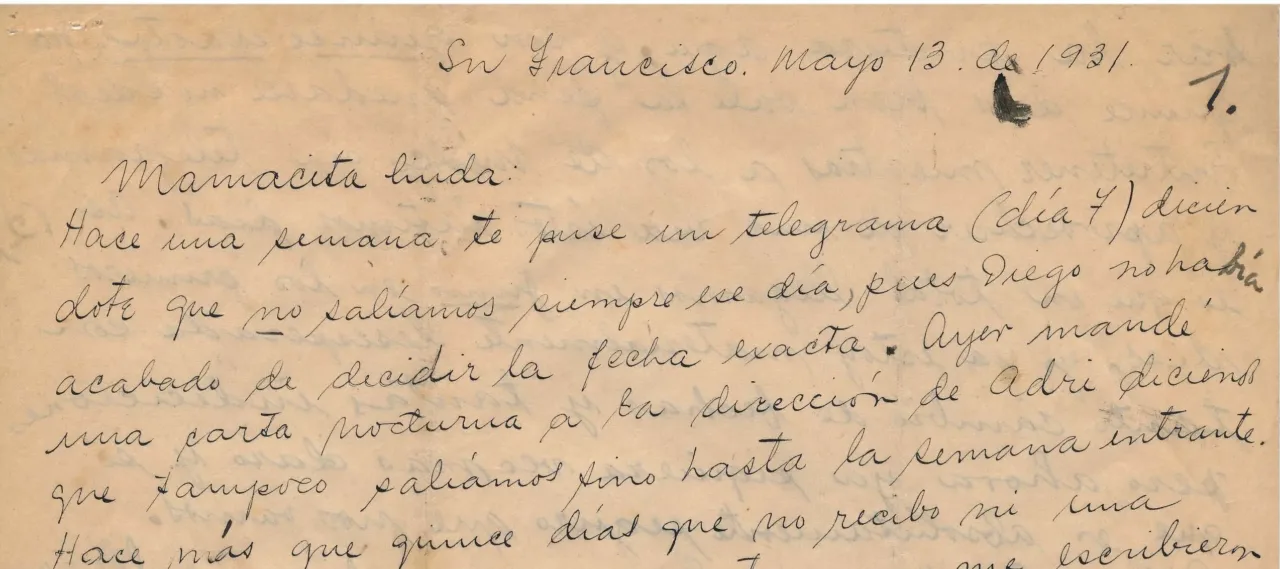 Sn Francisco. Mayo 13. de 1931.
1.
Mamacita linda:
Hace una semana, te puse un telegrama (día 7) dicien
dote que no salíamos siempre ese día, pues Diego no había
acabado de decidir la fecha exacta. Ayer mandé
una carta nocturna a la dirección de Adri diciendo
que tampoco salíamos sino hasta la semana entrante.
Hace más que quince días que no recibo ni una
me escribieron